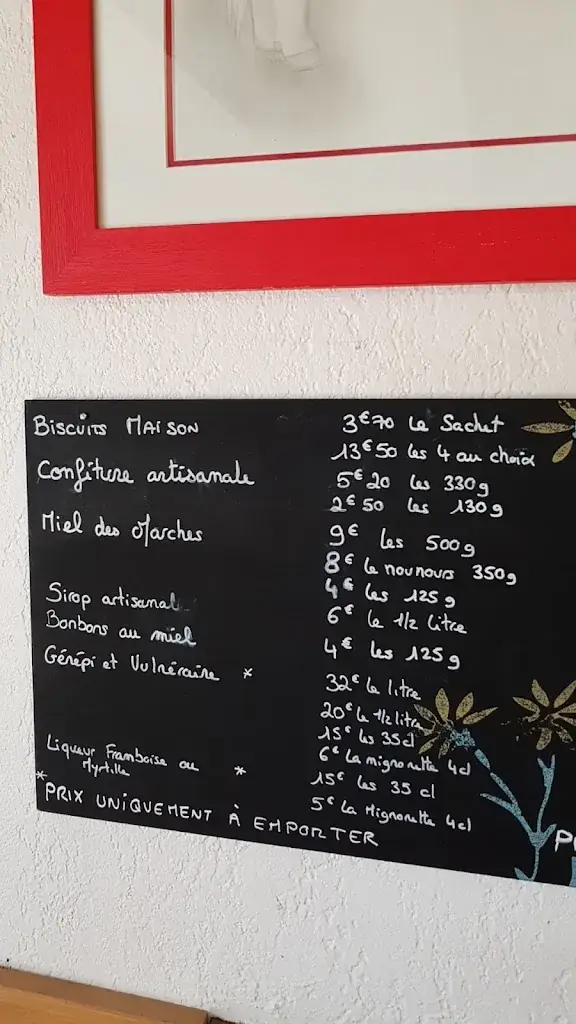 BISCUITS MAISON 3€70 Le Sachet
13€50 les 4 au choix
Confiture artisanale 5€20 les 330g
2€50 les 130g
Miel des Marches 9€ les 500g
8€ le nounours 350g
4€ les 125g
Sirop artisanal 6€ le 1/2 litre
Bonbons au miel 4€ les 125g
Génépi et Vulnéraire * 32€ le litre
20€ le 1/2 litre
15€ les 35cl
6€ la mignonette 4cl
Liqueur Framboise ou 15€ les 35 cl
Myrtille * 5€ la Mignonette 4cl
*PRIX UNIQUEMENT À EMPORTER